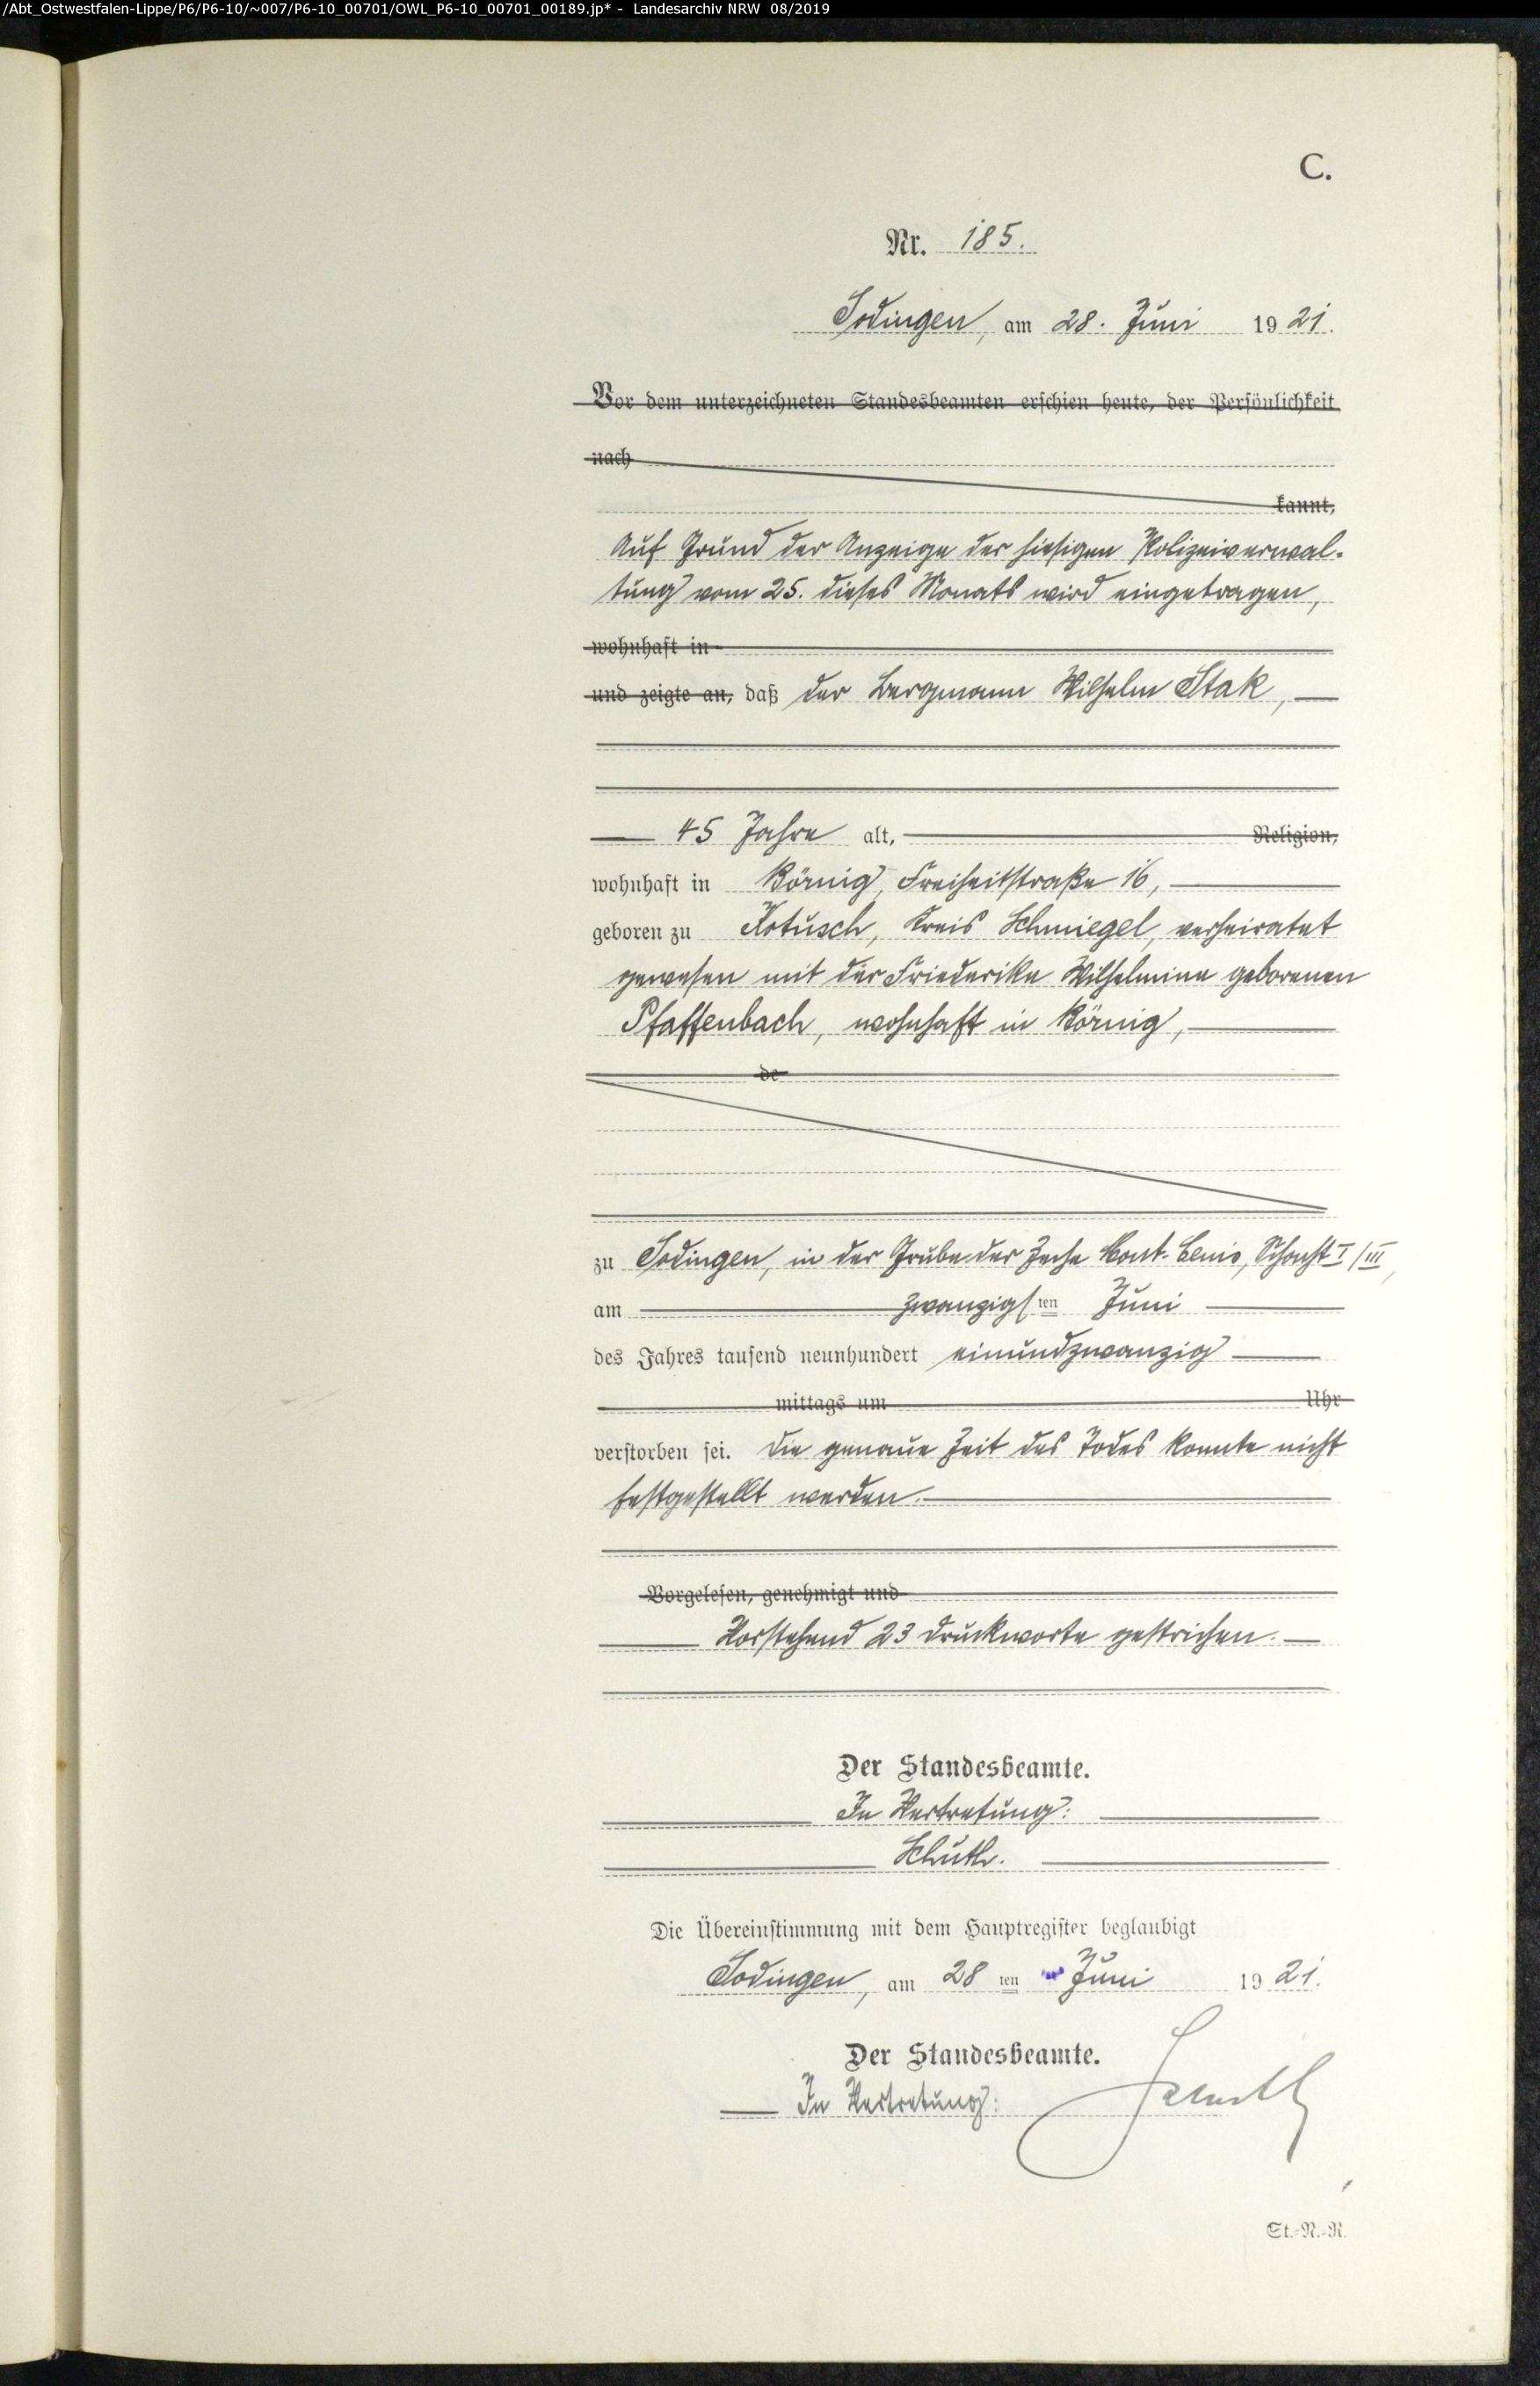 /Abt_Ostwestfalen-Lippe/P6/P6-10/~007/P6-10_00701/OWL_P6-10_00701_00189.jp* - Landesarchiv NRW 08/2019
C.
Nr. 185.
Sodingen, am 28. Juni 1921.
Vor dem unterzeichneten Standesbeamten erschien heute, der Persönlichkeit
nach
kannt,
Auf Grund der Anzeige der hiesigen Polizeiverwal-
tung vom 25. dieses Monats wird eingetragen,
wohnhaft in
und zeigte an, daß der Bergmann Wilhelm Stak,
45 Jahre alt, Religion,
wohnhaft in Börnig, Freiheitstraße 16,
geboren zu Kotusch, Kreis Schmiegel, verheiratet
gewesen mit der Friederike Wilhelmine geborenen
Pfaffenbach, wohnhaft in Börnig,
de
zu Sodingen, in der Grube der Zeche Mont-Cenis, Schacht I/III,
am zwanzigsten Juni
des Jahres tausend neunhundert einundzwanzig
mittags um Uhr
verstorben sei. Die genaue Zeit des Todes konnte nicht
festgestellt werden.
Vorgelesen, genehmigt und
Vorstehend 23 Druckworte gestrichen.
Der Standesbeamte.
In Vertretung:
Schuth.
Die Übereinstimmung mit dem Hauptregister beglaubigt
Sodingen, am 28ten Juni 1921.
Der Standesbeamte.
In Vertretung: Schuth
St.-N.-R.